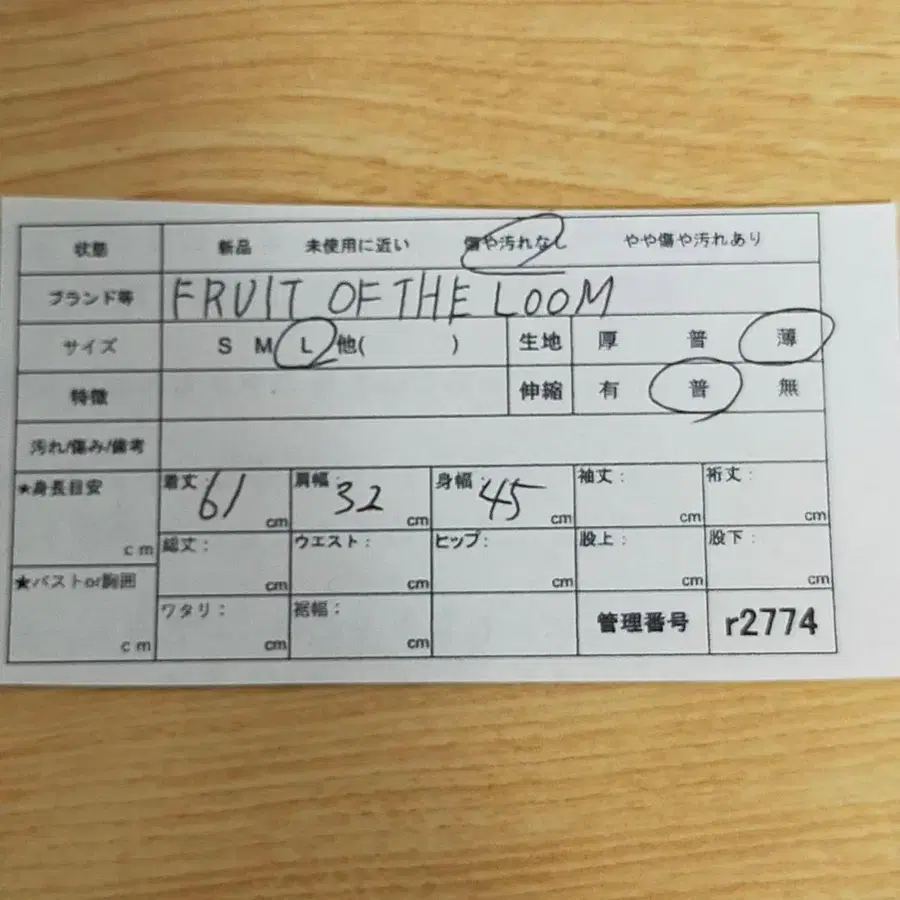 状態 新品 未使用に近い 傷や汚れなし やや傷や汚れあり
ブランド等 FRUIT OF THE LOOM
サイズ S M L 他( ) 生地 厚 普 薄
特徴 伸縮 有 普 無
汚れ/傷み/備考
★身長目安 cm 着丈: 61 cm 肩幅: 32 cm 身幅: 45 cm 袖丈: cm 裄丈: cm
総丈: cm ウエスト: cm ヒップ: cm 股上: cm 股下: cm
★バストor胸囲 cm ワタリ: cm 裾幅: cm 管理番号 r2774